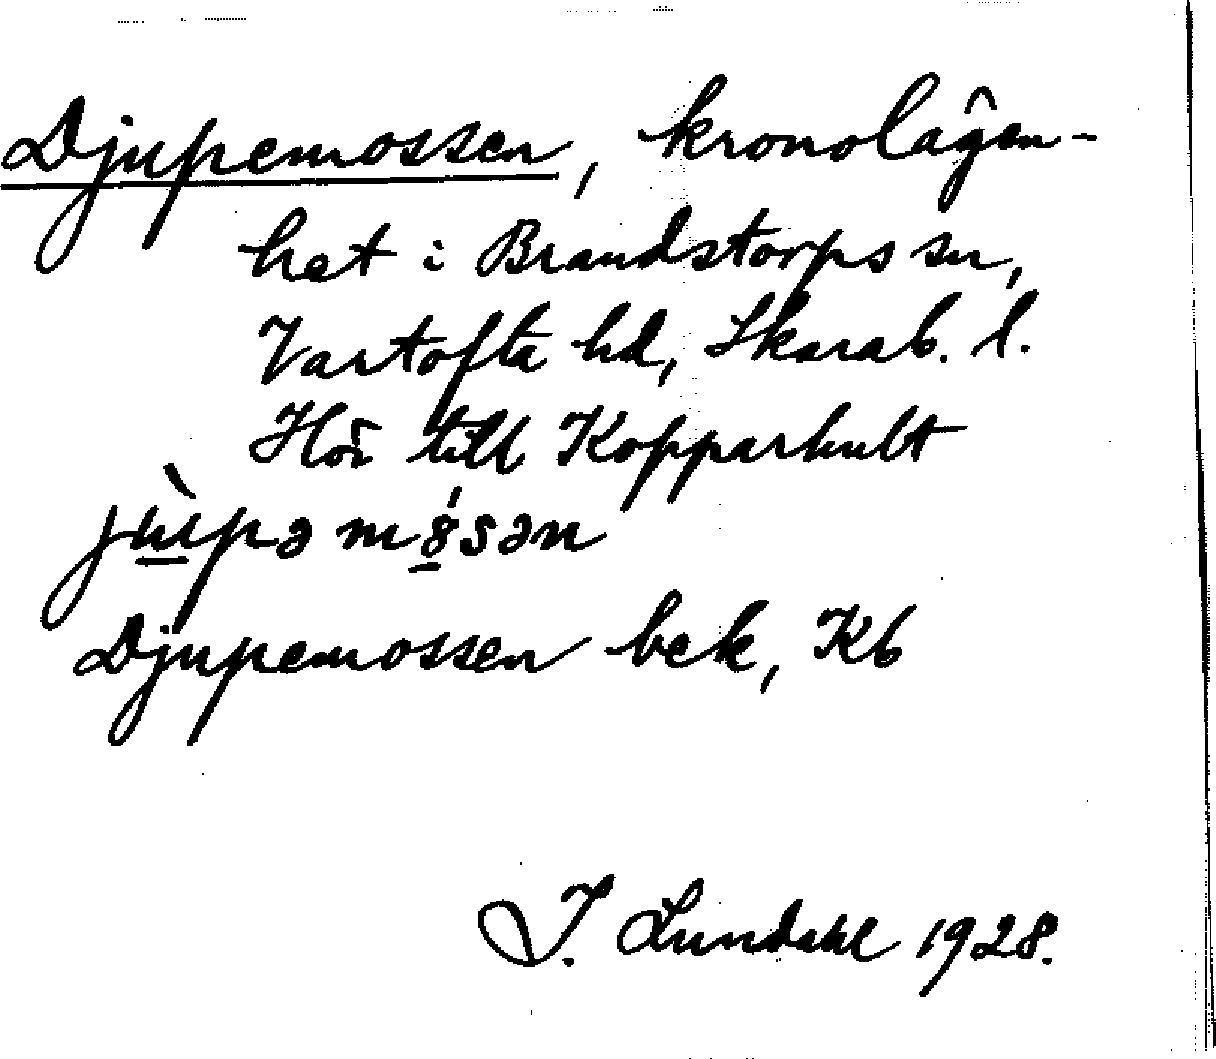 Djupemossen, kronolägen-
het i Brandstorps sn,
Vartofta hd, Skarab. l.
Hör till Kopparhult
jùpə mósən
Djupemossen bek, Kb
I. Lundahl 1928.